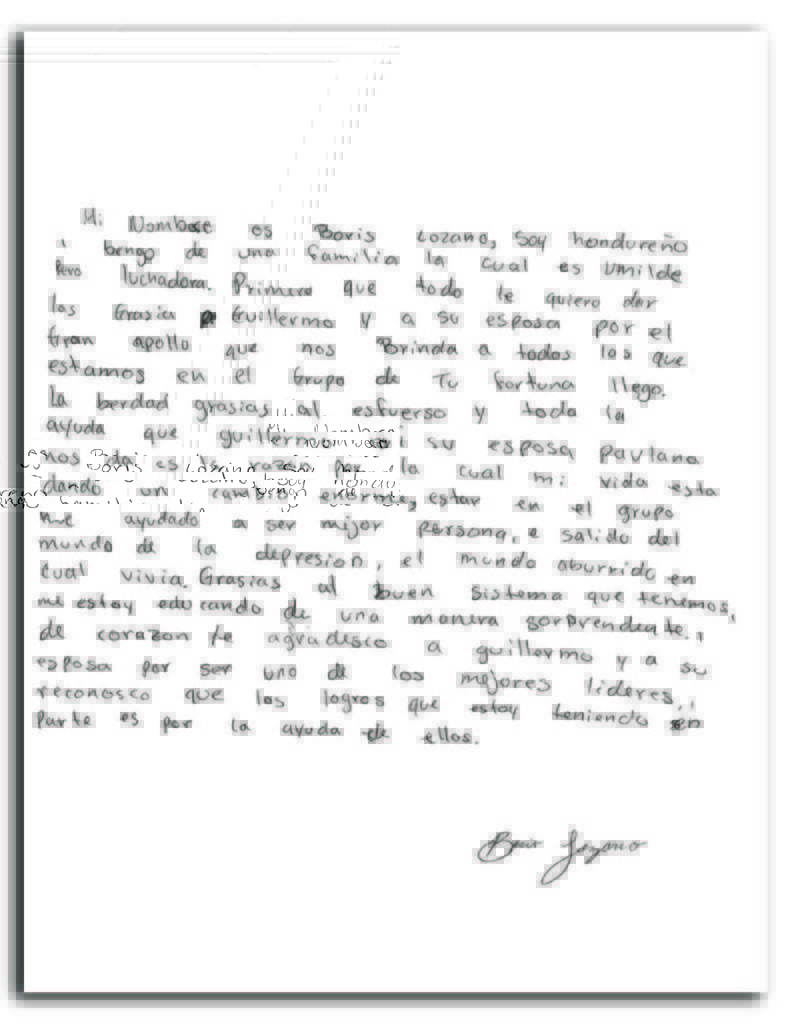 Mi Nombre es Boris Lozano, Soy hondureño
i bengo de una familia la cual es Umilde
Pero luchadora. Primero que todo le quiero dar
las Grasia a Guillermo y a su esposa por el
Gran apollo que nos Brinda a todos los que
estamos en el Grupo de Tu fortuna llego.
La berdad grasias al esfuerso y toda la
ayuda que guillermo i su esposa Pavlana
nos dan es la razón por la cual mi vida esta
dando un cambio enorme, estar en el grupo
me ayudado a ser mijor persona, e salido del
mundo de la depresion, el mundo aburrido en
cual vivia. Grasias al buen sistema que tenemos,
me estoy educando de una manera sorprendente.,
de corazon le agradesco a guillermo y a su
esposa por ser uno de los mejores lideres, i
reconosco que los logros que estoy teniendo en
Parte es por la ayuda de ellos.
Boris Lozano